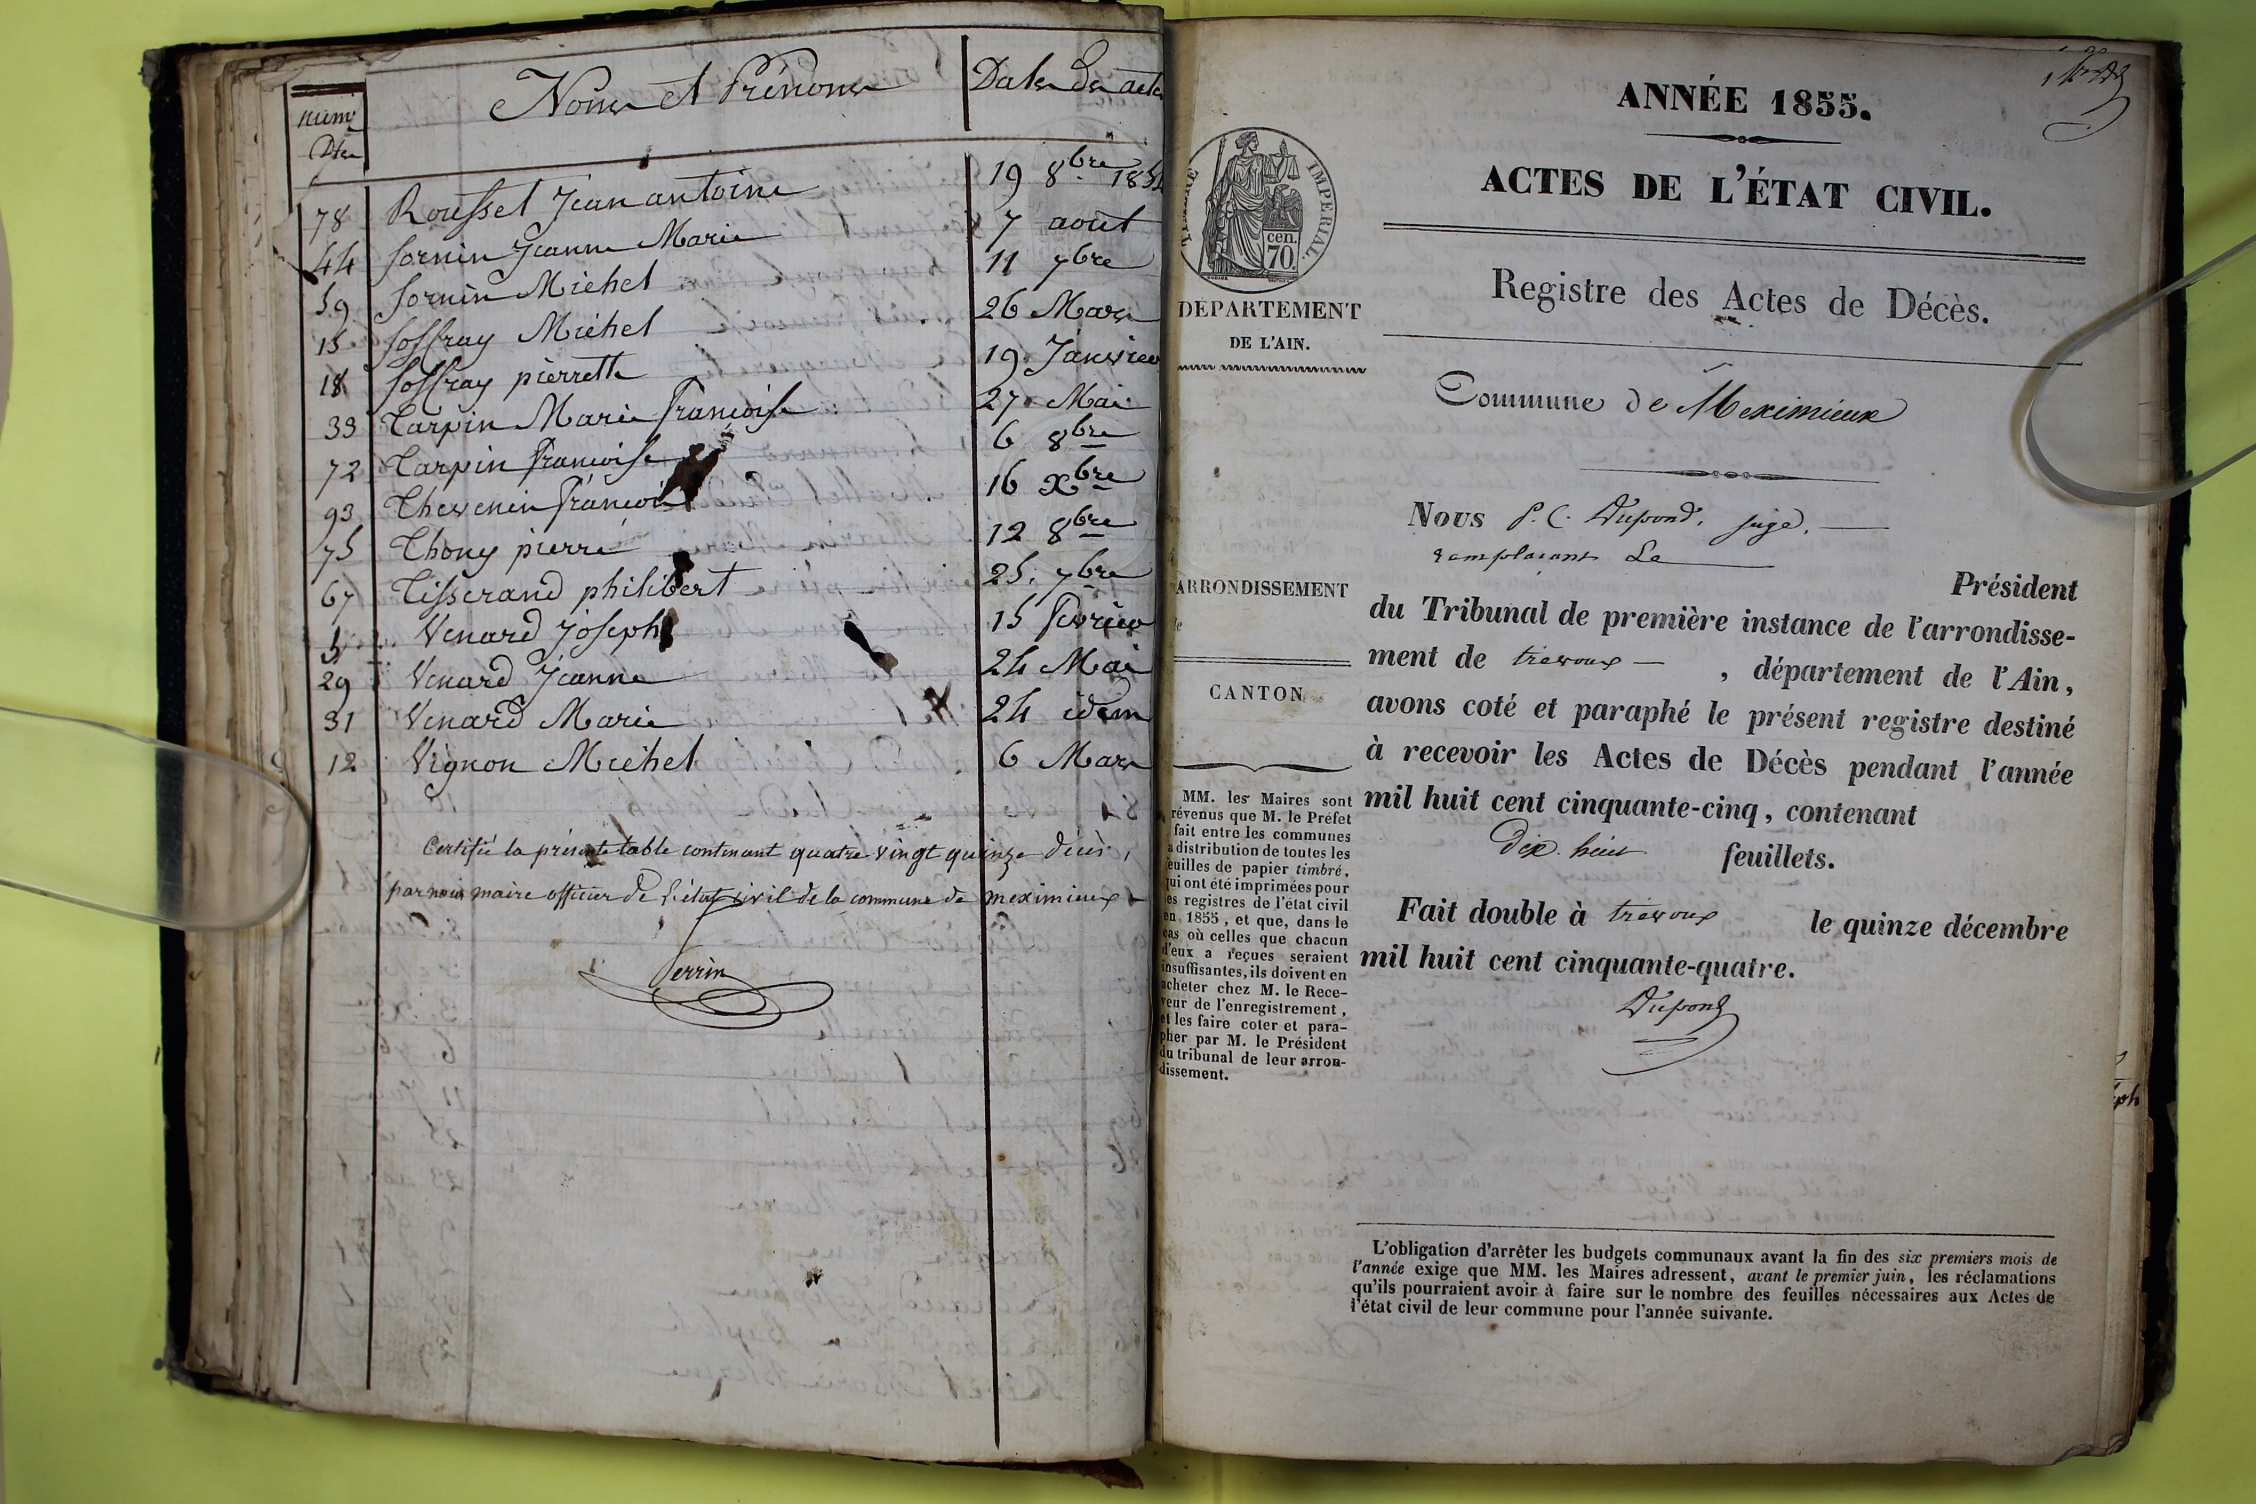 numé
Noms et Prénoms
Dates des actes
78 Roussel Jean antoine 19 8bre 1854
44 Sornin Jeanne Marie 7 août
59 Sornin Michel 11 7bre
15 Soffray Michel 26 Mars
18 Soffray pierrette 19 Janvier
33 Tarpin Marie françoise 27 Mai
72 Tarpin françoise 6 8bre
93 Thevenin françois 16 Xbre
75 Thony pierre 12 8bre
67 Tisserand philibert 25 7bre
Venard Joseph 15 fevrier
29 Venard Jeanne 24 Mai
31 Venard Marie 24 idem
12 Vignon Michel 6 Mars
Certifié la présente table contenant quatre-vingt quinze décès,
par nous maire officier de l'état civil de la commune de meximieux
Perrin
ANNÉE 1855.
ACTES DE L'ÉTAT CIVIL.
TIMBRE IMPERIAL
cen.
70.
DÉPARTEMENT
DE L'AIN.
Registre des Actes de Décès.
Commune de Meximieux
NOUS P. C. Dupond, juge,
remplaçant Le
Président
du Tribunal de première instance de l'arrondisse-
ment de trevoux, département de l'Ain,
avons coté et paraphé le présent registre destiné
à recevoir les Actes de Décès pendant l'année
mil huit cent cinquante-cinq, contenant
dix huit feuillets.
Fait double à trevoux le quinze décembre
mil huit cent cinquante-quatre.
Dupond
ARRONDISSEMENT
CANTON
MM. les Maires sont
révenus que M. le Préfet
fait entre les communes
a distribution de toutes les
euilles de papier timbré,
qui ont été imprimées pour
es registres de l'état civil
en 1855, et que, dans le
cas où celles que chacun
d'eux a reçues seraient
insuffisantes, ils doivent en
acheter chez M. le Rece-
veur de l'enregistrement,
et les faire coter et para-
pher par M. le Président
du tribunal de leur arron-
dissement.
L'obligation d'arrêter les budgets communaux avant la fin des six premiers mois de
l'année exige que MM. les Maires adressent, avant le premier juin, les réclamations
qu'ils pourraient avoir à faire sur le nombre des feuilles nécessaires aux Actes de
l'état civil de leur commune pour l'année suivante.